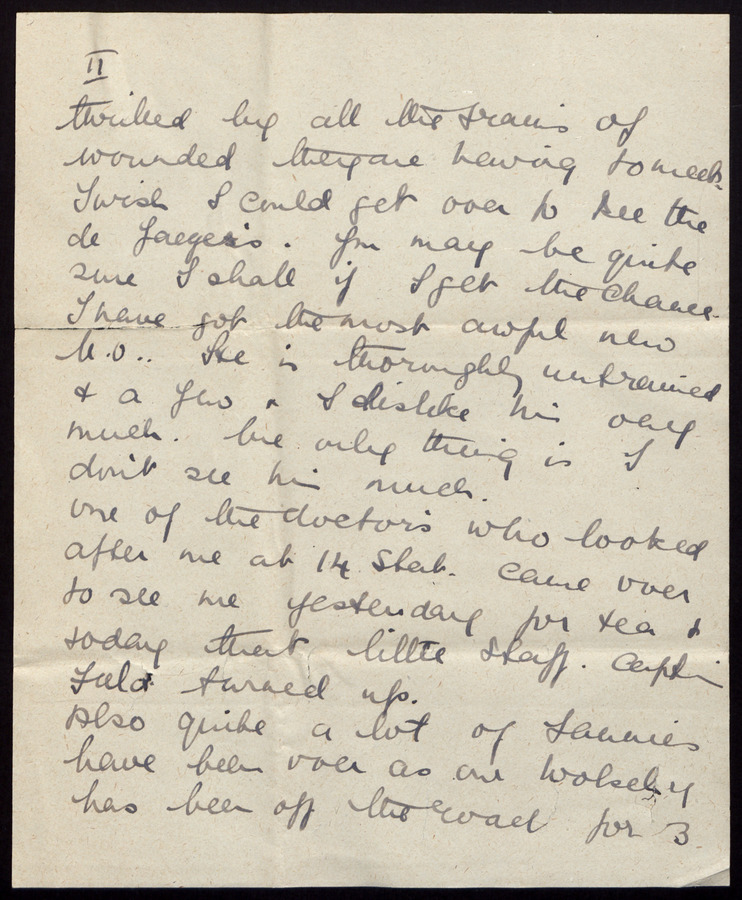 II
thrilled by all the trains of
wounded they are having to meet.
I wish I could get over to see the
de Jaegers. You may be quite
sure I shall if I get the chance.
I have got the most awful new
M.O.. He is thoroughly untrained
& a Jew & I dislike him very
much. The only thing is I
don't see him much.
One of the doctors who looked
after me at 14 Stat. came over
to see me yesterday for tea &
today that little Staff. Captain
turned up.
Also quite a lot of Sammies
have been over as our Wolseley
has been off the road for 3